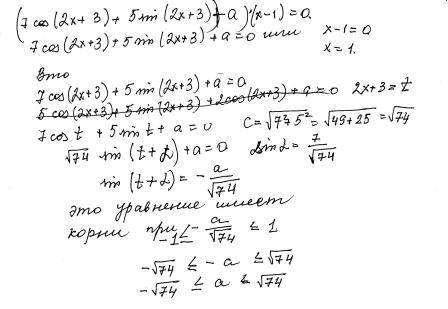 (7cos(2x+3)+5sin(2x+3)+a)(x-1)=0
7cos(2x+3)+5sin(2x+3)+a=0 или x-1=0
x=1.
Это
7cos(2x+3)+5sin(2x+3)+a=0
5cos(2x+3)+5sin(2x+3)+2cos(2x+3)+a=0 2x+3=t
7cos t+5sin t+a=0 C=√7²+5²=√49+25=√74
√74 sin(t+α)+a=0 sinα=7/√74
sin(t+α)=-a/√74
это уравнение имеет
корни при -1≤-a/√74≤1
-√74≤-a≤√74
-√74≤a≤√74